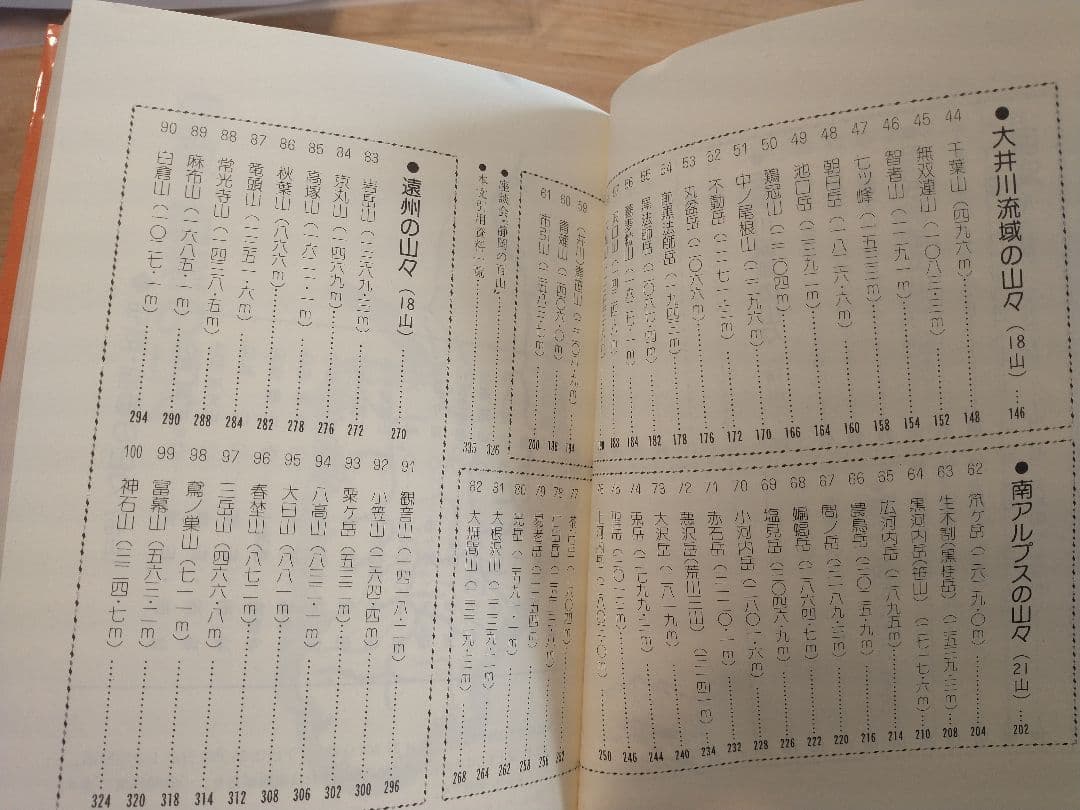 ●大井川流域の山々(18山)…146
44 千葉山(四九六m)…148
45 無双連山(一〇八三・三m)…152
46 智者山(一二九一m)…154
47 七ツ峰(一五三三m)…158
48 朝日岳(一八二六・六m)…160
49 池口岳(二三九二m)…164
50 鶏冠山(二二〇四m)…166
51 中ノ尾根山(二二九六m)…170
52 不動岳(二一七一・三m)…172
53 丸盆岳…176
54 前黒法師岳(一九四三m)…178
55 黒法師岳…182
56 蕎麦粒山(一六二七・一m)…184
188
59
60 青薙山
61 布引山…200
●座談会・静岡の百山…326
●本文引用資料一覧…335
●南アルプスの山々(21山)…202
62 笊ヶ岳(二六二九・〇m)…204
63 生木割(黒桂岳)(二五三九・三m)…208
64 黒河内岳(笹山)(二七一七・六m)…210
65 広河内岳(二八九五m)…214
66 農鳥岳(三〇二五・九m)…216
67 間ノ岳(三一八九・三m)…220
68 蝙蝠岳(二八六四・七m)…222
69 塩見岳(三〇四六・九m)…226
228
70 小河内岳(二八〇一・六m)…232
71 赤石岳(三一二〇・一m)…234
72 悪沢岳(荒川三山)(三一四一m)…240
73 大沢岳(二八一九m)…244
74 兎岳(二七九九・三m)…246
聖岳(三〇一三m)
上河内岳…250
79 易老岳(二三五四m)…256
80 光岳(二五九一・一m)…258
81 大根沢山(二二三九・六m)…262
264
82 大無間山(二三二九・三m)…268
●遠州の山々(18山)…270
83 岩岳山(一三六九・三m)…272
84 京丸山(一四六九m)…276
85 高塚山(一六二一・一m)…278
86 秋葉山(八六六m)…282
87 竜頭山(一三五一・六m)…284
88 常光寺山(一四三八・五m)…288
89 麻布山(一六八五・一m)…290
90 白倉山(一〇二七・一m)…294
91 観音山(一四一八・二m)…296
92 小笠山(二六四・四m)…300
93 粟ヶ岳(五三二m)…302
94 八高山(八三二・一m)…306
95 大日山(八八一m)…308
96 春埜山(八八三m)…312
97 三岳山(四六六・八m)…314
98 鳶ノ巣山(七一一m)…318
99 富幕山(五六三・二m)…320
100 神石山(三二四・七m)…324